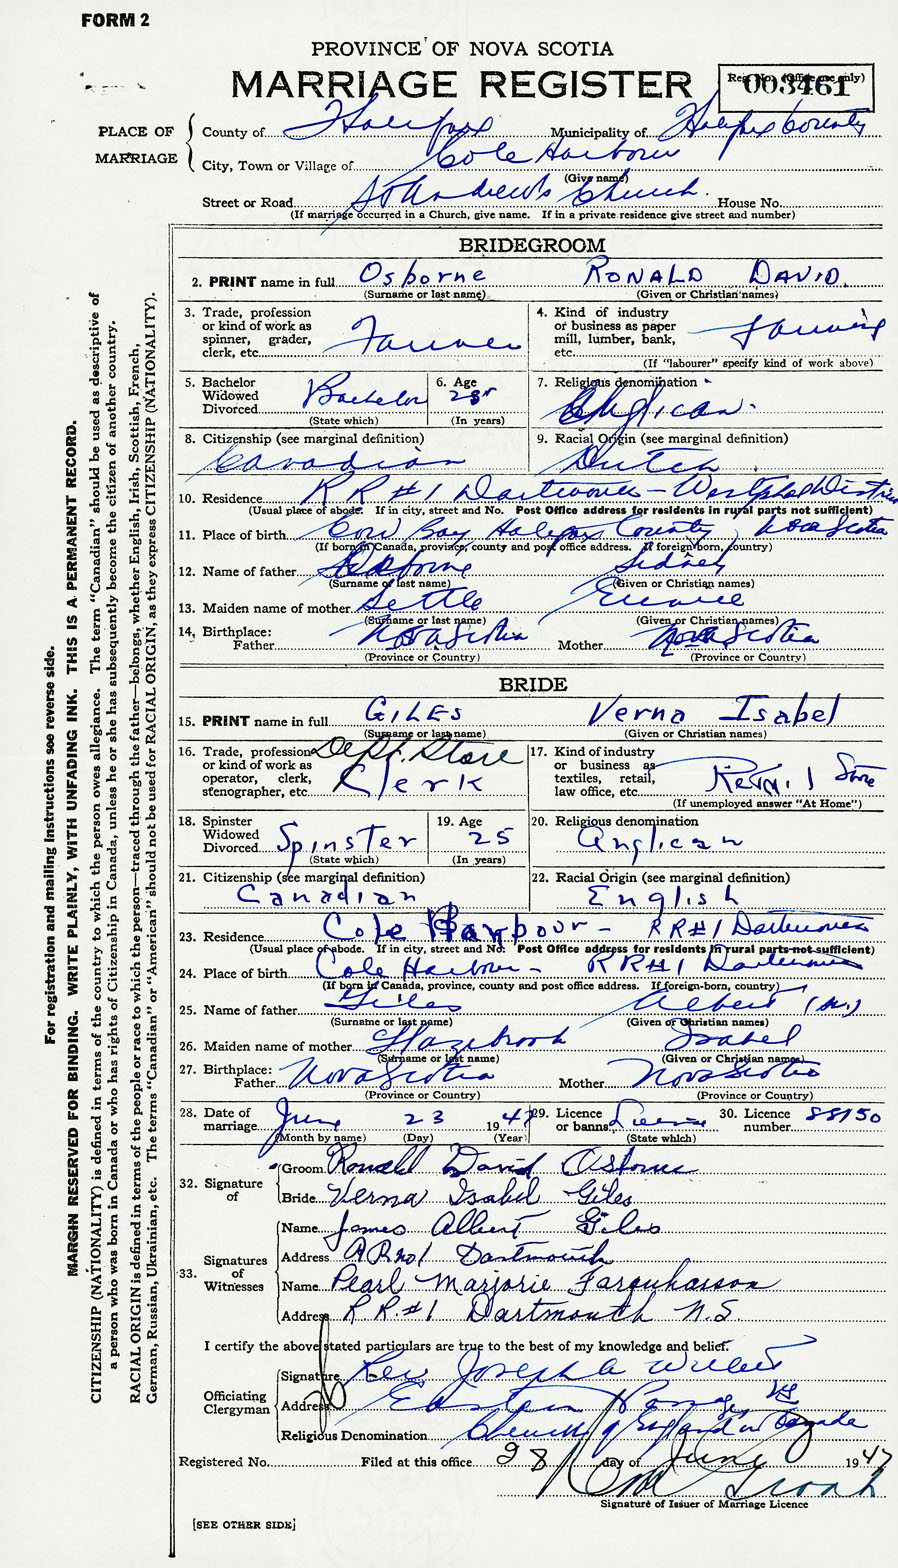 FORM 2
PROVINCE OF NOVA SCOTIA
MARRIAGE REGISTER
Reg. No. (Office use only)
003461
PLACE OF MARRIAGE
County of Halifax Municipality of Halifax County
City, Town or Village of Cole Harbour
(Give name)
Street or Road St Andrew's Church. House No.
(If marriage occurred in a Church, give name. If in a private residence give street and number)
BRIDEGROOM
2. PRINT name in full Osborne RONALD DAVID.
(Surname or last name) (Given or Christian names)
3. Trade, profession or kind of work as spinner, grader, clerk, etc. Farmer
4. Kind of industry or business as paper mill, lumber, bank, etc. Farming
(If "labourer" specify kind of work above)
5. Bachelor Widowed Divorced Bachelor
(State which)
6. Age
(In years)
7. Religious denomination Anglican.
8. Citizenship (see marginal definition) Canadian
9. Racial Origin (see marginal definition) Dutch
10. Residence RR#1 Dartmouth - Westphal District
(Usual place of abode. If in city, street and No. Post Office address for residents in rural parts not sufficient)
11. Place of birth Cow Bay Halifax County Nova Scotia
(If born in Canada, province, county and post office address. If foreign born, country)
12. Name of father Osborne Sidney
(Surname of last name) (Given or Christian names)
13. Maiden name of mother Settle
(Surname or last name) (Given or Christian names)
14. Birthplace: Father Nova Scotia Mother Nova Scotia
(Province or Country) (Province or Country)
BRIDE
15. PRINT name in full GILES Verna Isabel
(Surname or last name) (Given or Christian names)
16. Trade, profession or kind of work as operator, clerk, stenographer, etc. Dept. Store Clerk
17. Kind of industry or business as textiles, retail, law office, etc. Retail Store
(If unemployed answer "At Home")
18. Spinster Widowed Divorced Spinster
(State which)
19. Age 25
(In years)
20. Religious denomination Anglican
21. Citizenship (see marginal definition) Canadian
22. Racial Origin (see marginal definition) English
23. Residence Cole Harbour - RR#1 Dartmouth
(Usual place of abode. If in city, street and No. Post Office address for residents in rural parts not sufficient)
24. Place of birth Cole Harbour - RR#1 Dartmouth
(If born in Canada, province, county and post office address. If foreign-born, country)
25. Name of father Giles Albert
(Surname or last name) (Given or Christian names)
26. Maiden name of mother Hazebrook Isabel
(Surname or last name) (Given or Christian names)
27. Birthplace: Father Nova Scotia Mother Nova Scotia
(Province or Country) (Province or Country)
28. Date of marriage June 23 1947
(Month by name) (Day) (Year)
29. Licence or banns License
(State which)
30. Licence number 88150
32. Signature of
Groom Ronald David Osborne
Bride Verna Isabel Giles
33. Signatures of Witnesses
Name James Albert Giles
Address RR no 1 Dartmouth
Name Pearl Marjorie Farquharson
Address R R. #1 Dartmouth N.S.
I certify the above stated particulars are true to the best of my knowledge and belief.
Officiating Clergyman
Signature Rev Joseph A
Address Eastern Passage NS
Religious Denomination Church of England in Canada
Registered No. Filed at this office 28 day of June 1947
Signature of Issuer of Marriage Licence
[SEE OTHER SIDE]
For registration and mailing instructions see reverse side.
MARGIN RESERVED FOR BINDING. WRITE PLAINLY, WITH UNFADING INK. THIS IS A PERMANENT RECORD.
CITIZENSHIP (NATIONALITY) is defined in terms of the country to which the person owes allegiance. The term "Canadian" should be used as descriptive of
a person who was born in Canada or who has rights of Citizenship in Canada, unless he or she has subsequently become the citizen of another country.
RACIAL ORIGIN is defined in terms of the people or race to which the person—traced through the father—belongs, whether English, Irish, Scottish, French,
German, Russian, Ukrainian, etc. The terms "Canadian" or "American" should not be used for RACIAL ORIGIN, as they express CITIZENSHIP (NATIONALITY).